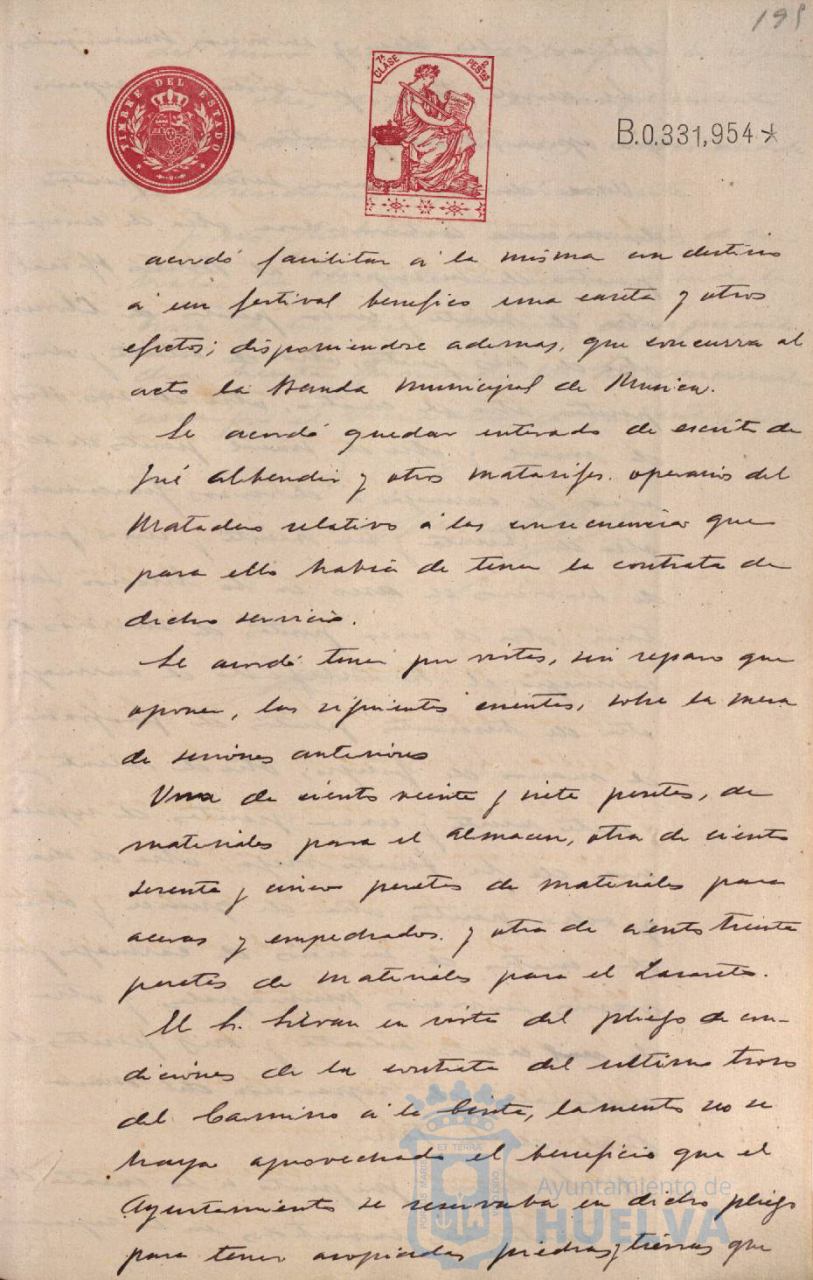 195
TIMBRE DEL ESTADO
7ª CLASE 2 PESTAS
B.0.331,954*
acordó facilitar á la misma con destino
á un festival benefico una careta y otros
efectos; disponiendose ademas, que concurra al
acto la Banda Municipal de Musica.
Se acordó quedar enterado de escrito de
José y otros matarifes operarios del
Matadero relativo á las consecuencias que
para ello habia de tener la contrata de
dicho servicio.
Se acordó tener por vistas, sin reparo que
oponer, las siguientes cuentas, sobre la mesa
de sesiones anteriores
Una de ciento veinte y siete pesetas, de
materiales para el almacen, otra de ciento
sesenta y cinco pesetas de materiales para
aceras y empedrados. y otra de ciento treinta
pesetas de materiales para el Lazareto.
El Sr. en vista del pliego de con-
diciones de la contrata del ultimo trozo
del Camino á la Cinta, lamento no se
haya aprovechado el beneficio que el
Ayuntamiento se reservaba en dicho pliego
para tener acopiadas piedras y tierras que
Ayuntamiento de
HUELVA